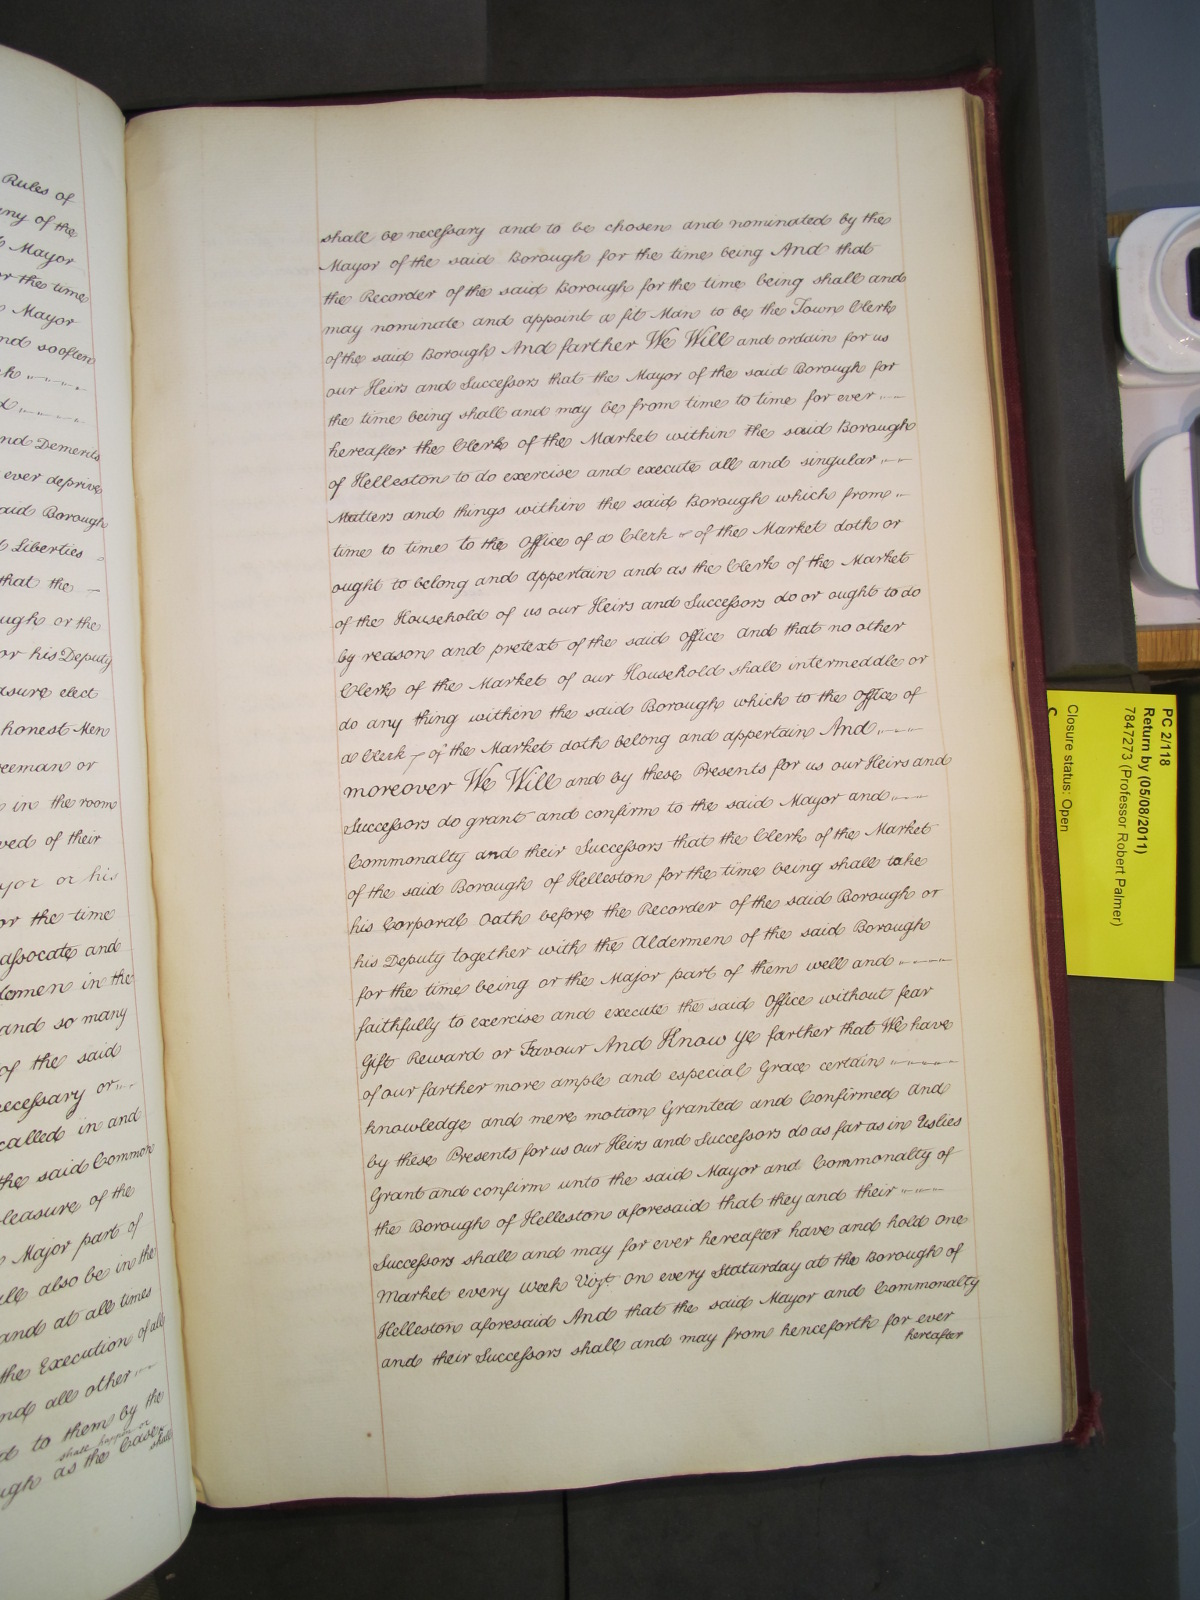 Rules of
ny of the
Mayor
or the time
Mayor
nd so often
nd Demerits
ever deprive
aid Borough
Liberties
that the
ugh or the
or his Deputy
asure elect
honest Men
reeman or
in the room
ved of their
yor or his
or the time
assocate and
dermen in the
and so many
of the said
ecessary or
called in and
the said Common
leasure of the
Major part of
all also be in the
and at all times
the Execution of all
nd all other
to them by the
shall happen or
ugh as the Case
shall
shall be necessary and to be chosen and nominated by the
Mayor of the said Borough for the time being And that
the Recorder of the said Borough for the time being shall and
may nominate and appoint a fit Man to be the Town Clerk
of the said Borough And farther We Will and ordain for us
our Heirs and Successors that the Mayor of the said Borough for
the time being shall and may be from time to time for ever
hereafter the Clerk of the Market within the said Borough
of Helleston to do exercise and execute all and singular
Matters and things within the said Borough which from
time to time to the Office of a Clerk of the Market doth or
ought to belong and appertain and as the Clerk of the Market
of the Household of us our Heirs and Successors do or ought to do
by reason and pretext of the said Office and that no other
Clerk of the Market of our Household shall intermeddle or
do any thing within the said Borough which to the Office of
a Clerk of the Market doth belong and appertain And
moreover We Will and by these Presents for us our Heirs and
Successors do grant and confirm to the said Mayor and
Commonalty and their Successors that the Clerk of the Market
of the said Borough of Helleston for the time being shall take
his Corporal Oath before the Recorder of the said Borough or
his Deputy together with the Aldermen of the said Borough
for the time being or the Major part of them well and
faithfully to exercise and execute the said Office without fear
Gift Reward or Favour And Know ye farther that We have
of our farther more ample and especial Grace certain
knowledge and mere motion Granted and Confirmed and
by these Presents for us our Heirs and Successors do as far as in Uslies
Grant and confirm unto the said Mayor and Commonalty of
the Borough of Helleston aforesaid that they and their
Successors shall and may for ever hereafter have and hold one
Market every week Vizt. on every Staturday at the Borough of
Helleston aforesaid And that the said Mayor and Commonalty
and their Successors shall and may from henceforth for ever
hereafter
PC 2/118
Return by (05/08/2011)
7847273 (Professor Robert Palmer)
Closure status: Open